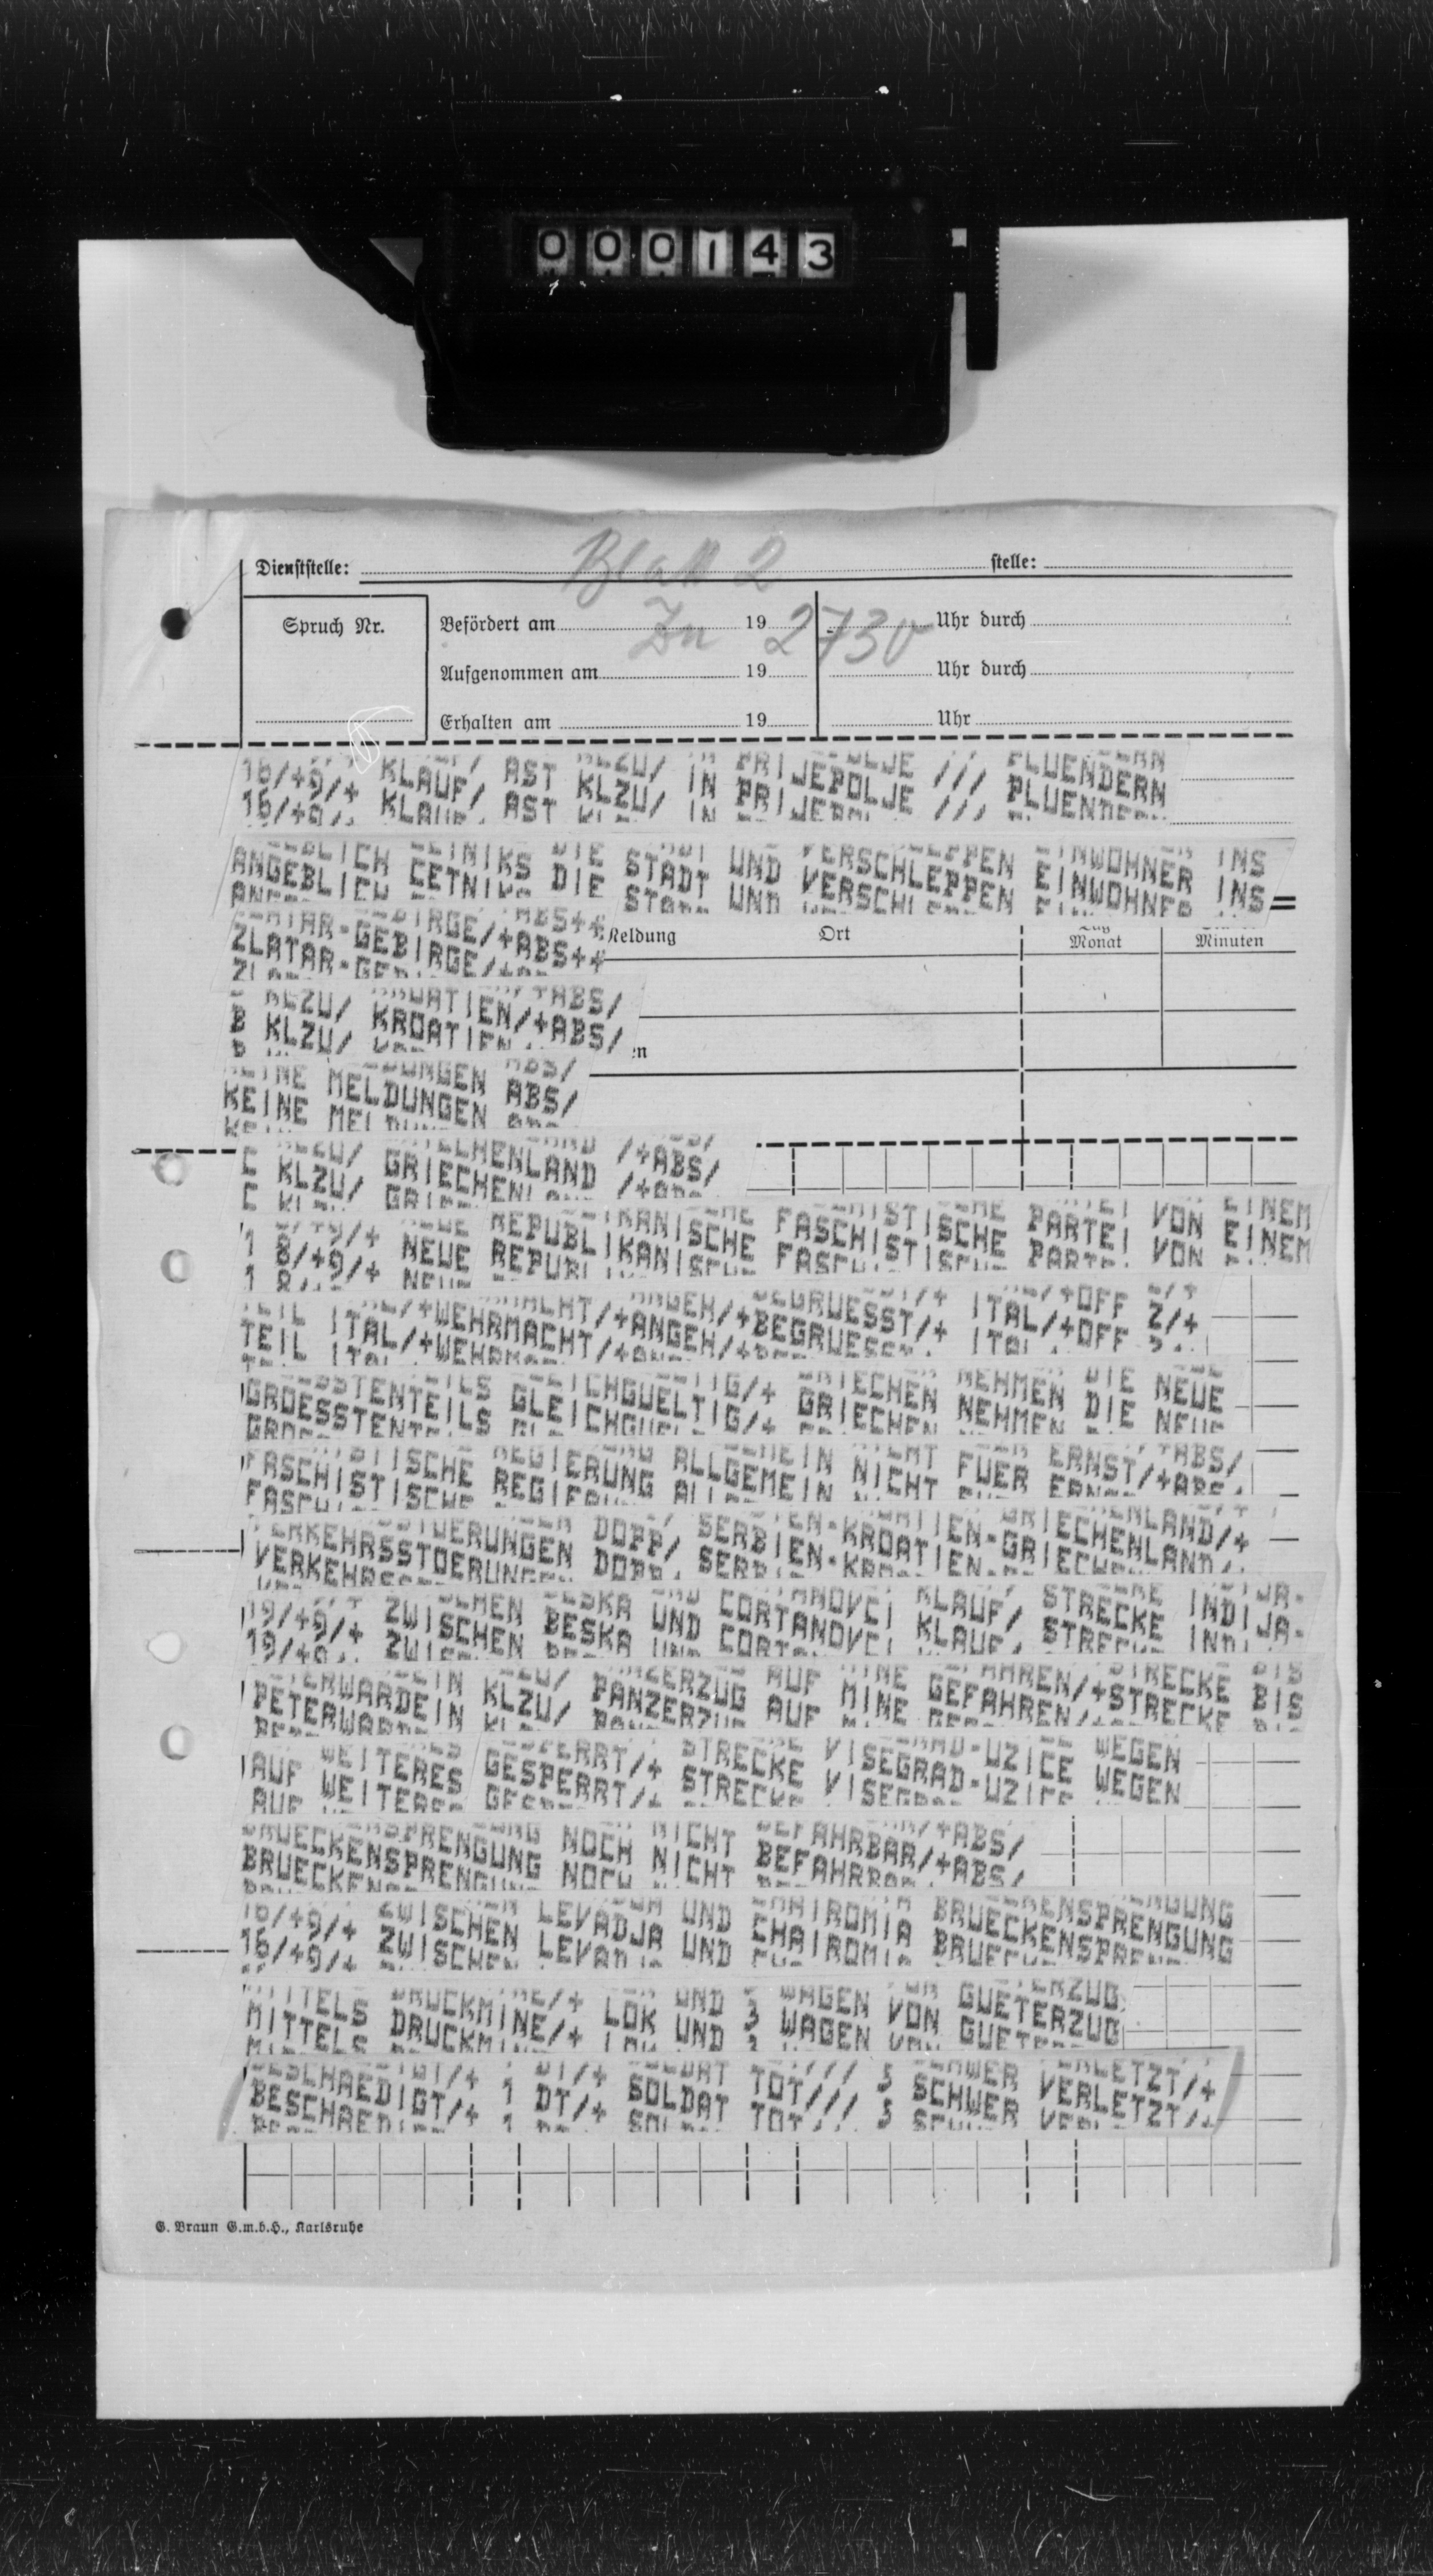 000143
Dienststelle: Blatt 2 stelle:
Spruch Nr.
Befördert am 19 Uhr durch
Zu 2730
Aufgenommen am 19 Uhr durch
Erhalten am 19 Uhr
16/+9/+ KLAUF/ AST KLZU/ IN PRIJEPOLJE /// PLUENDERN
ANGEBLICH CETNIKS DIE STADT UND VERSCHLEPPEN EINWOHNER INS
ZLATAR-GEBIRGE/+ABS++
Meldung Ort Tag Monat Minuten
B KLZU/ KROATIEN/+ABS/
KEINE MELDUNGEN ABS/
C KLZU/ GRIECHENLAND /+ABS/
1 8/+9/+ NEUE REPUBLIKANISCHE FASCHISTISCHE PARTEI VON EINEM
TEIL ITAL/+WEHRMACHT/+ANGEH/+BEGRUESST/+ ITAL/+OFF Z/+
GROESSTENTEILS GLEICHGUELTIG/+ GRIECHEN NEHMEN DIE NEUE
FASCHISTISCHE REGIERUNG ALLGEMEIN NICHT FUER ERNST/+ABS/
VERKEHRSSTOERUNGEN DOPP/ SERBIEN-KROATIEN-GRIECHENLAND/+
19/+9/+ ZWISCHEN BESKA UND CORTANOVCI KLAUF/ STRECKE INDIJA-
PETERWARDEIN KLZU/ PANZERZUG AUF MINE GEFAHREN/+STRECKE BIS
AUF WEITERES GESPERRT/+ STRECKE VISEGRAD-UZICE WEGEN
BRUECKENSPRENGUNG NOCH NICHT BEFAHRBAR/+ABS/
16/+9/+ ZWISCHEN LEVADJA UND CHAIROMIA BRUECKENSPRENGUNG
MITTELS DRUCKMINE/+ LOK UND 3 WAGEN VON GUETERZUG
BESCHAEDIGT/+ 1 DT/+ SOLDAT TOT/// 5 SCHWER VERLETZT/+
G. Braun G.m.b.H., Karlsruhe